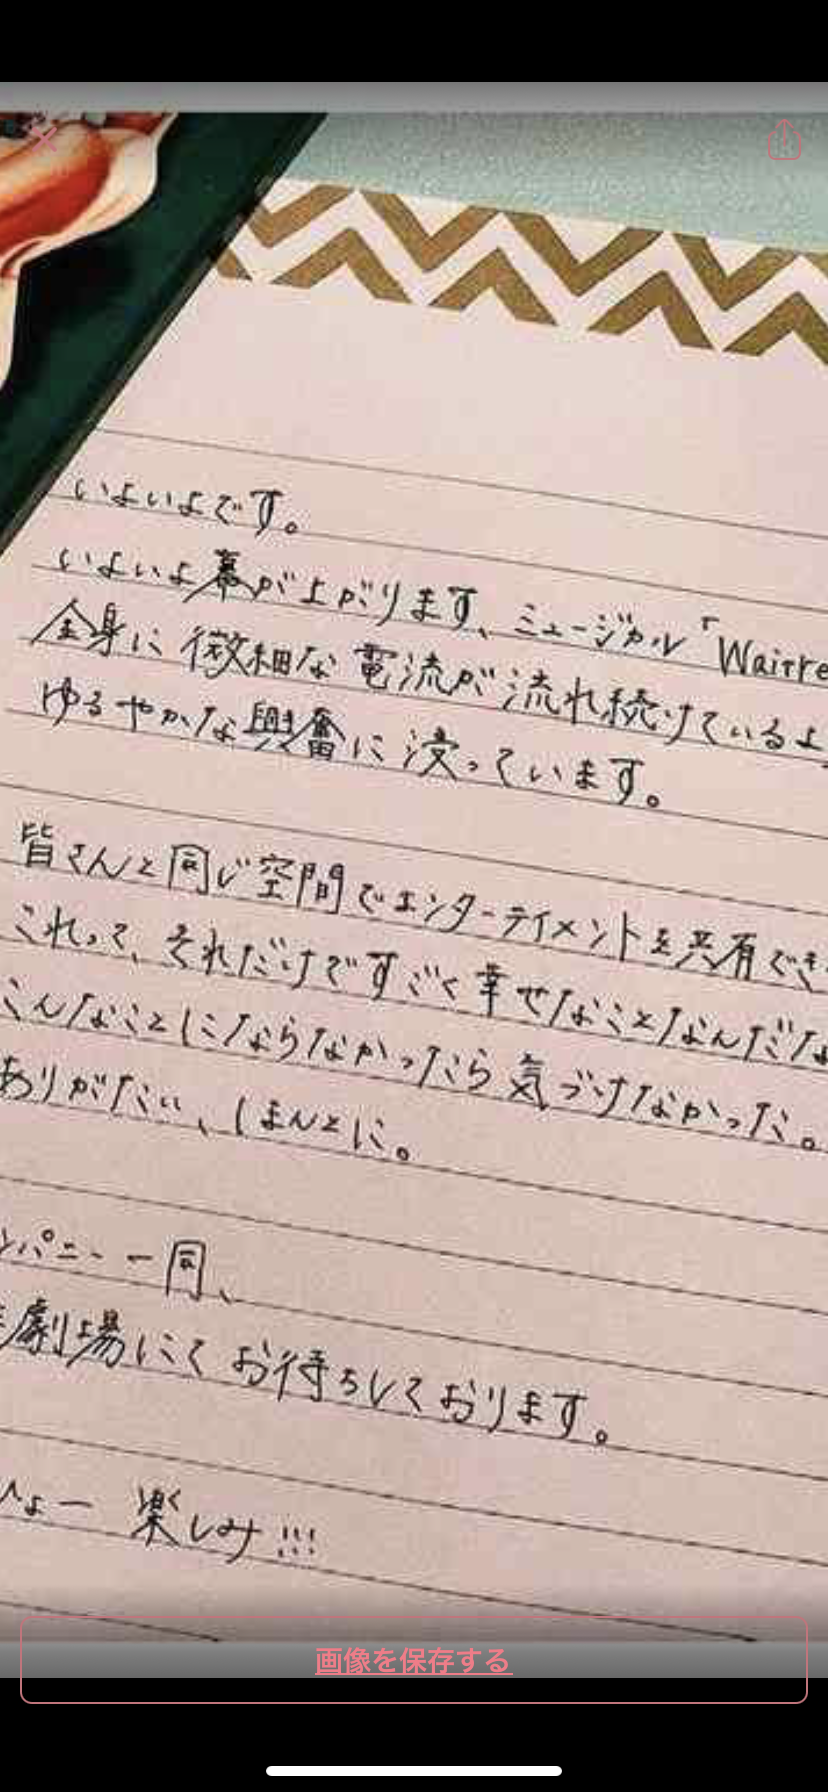 いよいよです。
いよいよ幕が上がります、ミュージカル「Waitre
全身に微細な電流が流れ続けているよ
ゆるやかな興奮に浸っています。
皆さんと同じ空間でエンターテイメントを共有でき
これって、それだけですごく幸せなことなんだな
こんなことにならなかったら気づけなかった。
ありがたい、ほんとに。
ンパニー一同、
劇場にてお待ちしております。
ひょー 楽しみ!!!
画像を保存する